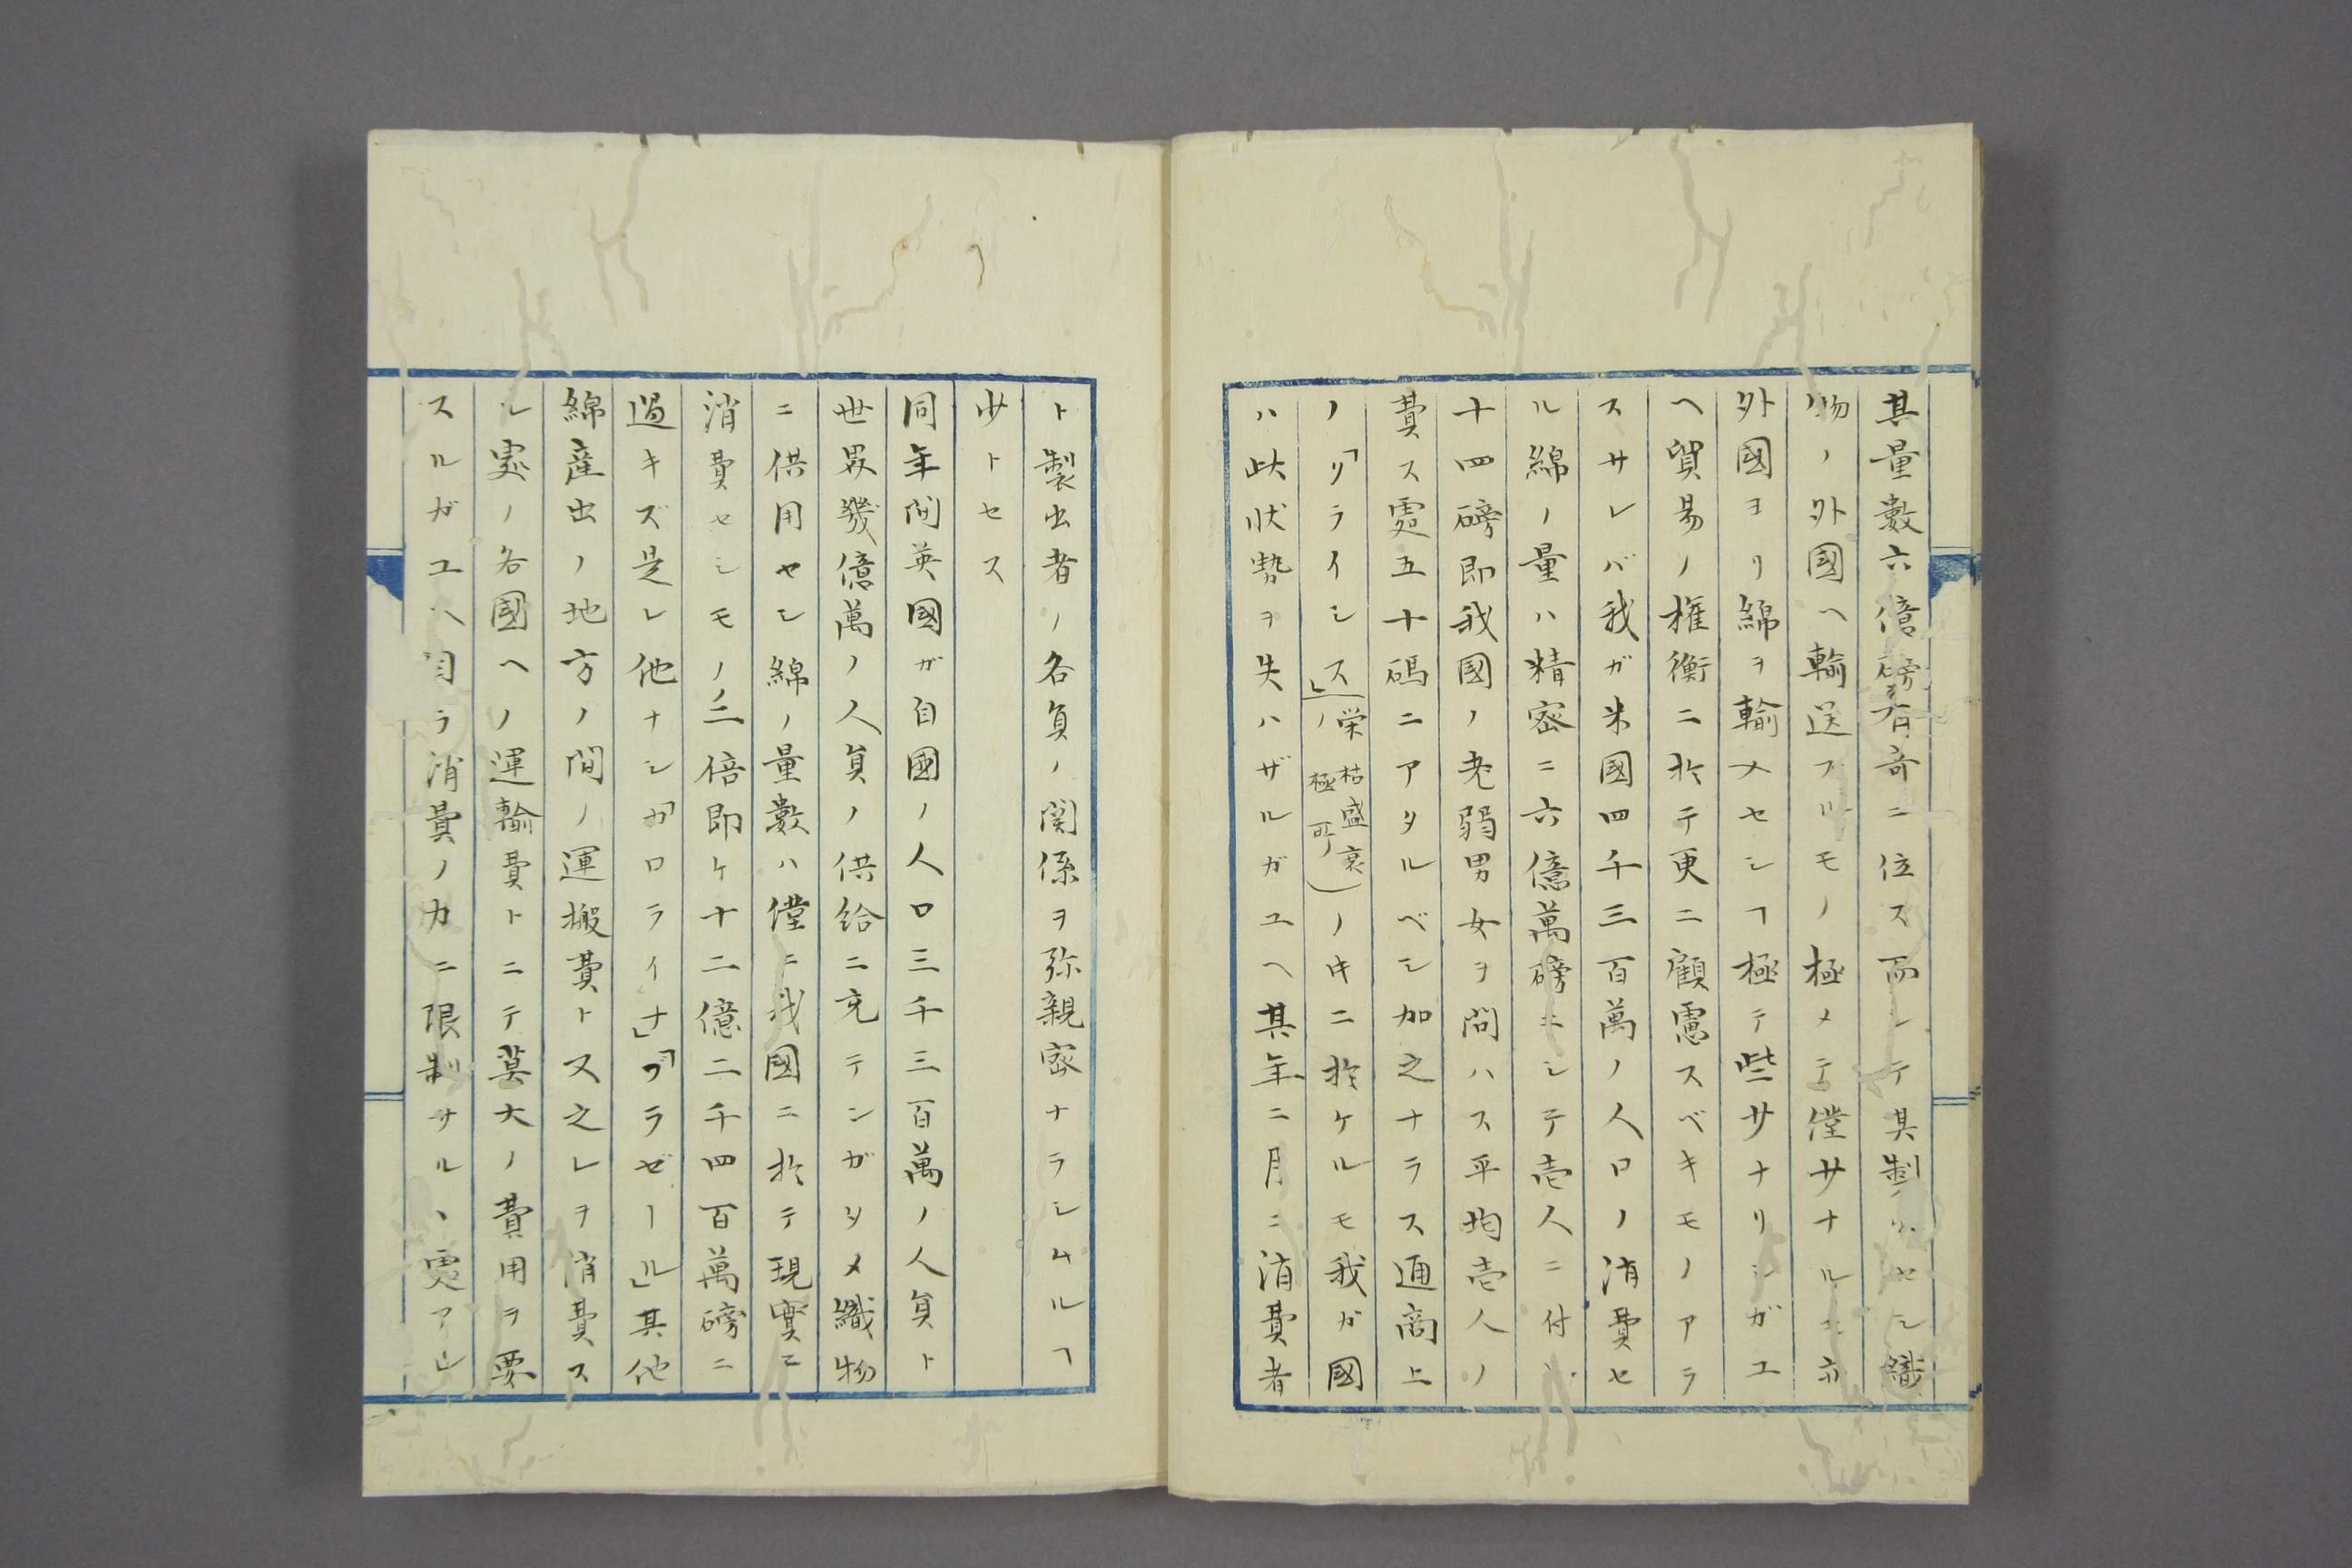 其量數六億磅有奇ニ位ス而シテ其製出セシ織
物ノ外國ヘ輸送スルモノ極メテ僅サナルニ亦
外國ヨリ綿ヲ輸入セシヿ極テ些サナリシガユ
ヘ貿易ノ権衡ニ於テ更ニ顧慮スベキモノアラ
スサレバ我ガ米國四千三百萬ノ人口ノ消費セ
ル綿ノ量ハ精密ニ六億萬磅ニシテ壱人ニ付
十四磅即我國ノ老弱男女ヲ問ハス平均壱人ノ
費ス處五十碼ニアタルベシ加之ナラス通商上
ノ「リライシス」(栄枯盛衰ノ極可)ノ中ニ於ケルモ我ガ國
ハ此状勢ヲ失ハザルガユヘ其年ニ月ニ消費者
ト製出者ノ各負ノ関係ヲ弥親密ナラシムルヿ
少トセス
同年間英國ガ自國ノ人口三千三百萬ノ人負ト
世界幾億萬ノ人負ノ供給ニ充テンガタメ織物
ニ供用セシ綿ノ量數ハ僅ニ我國ニ於テ現實ニ
消費セシモノノ三倍即ケ十二億二千四百萬磅ニ
過キズ是レ他ナシ「カロライナ」「ブラゼール」其他
綿産出ノ地方ノ間ノ運搬費ト又之レヲ消費ス
ル実ノ各國ヘノ運輸費トニテ莫大ノ費用ヲ要
スルガユヘ自ラ消費ノ力ニ限制サルヽ處アリ